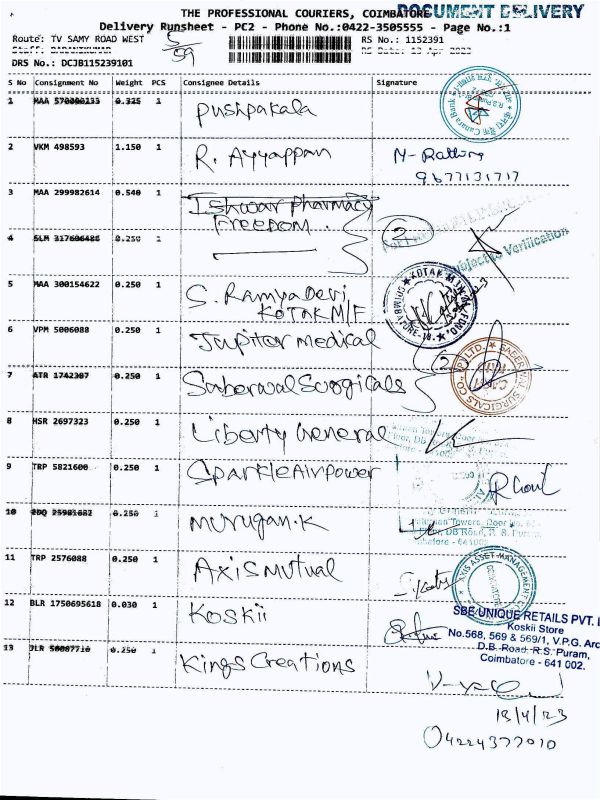 THE PROFESSIONAL COURIERS, COIMBATORE
DOCUMENT DELIVERY
Delivery Runsheet - PC2 - Phone No.:0422-3505555 - Page No.:1
Route: TV SAMY ROAD WEST
5/59
RS No.: 1152391
DRS No.: DCJB115239101
S No Consignment No Weight PCS Consignee Details Signature
1 MAA 0.325 1 Pushpakala
Canara Bank
2 VKM 498593 1.150 1 R. Ayyappan
9677131717
3 MAA 299982614 0.540 1 Ishwar Pharmacy
FREEDOM
2
Subject to Verification
4 SLM 317606486 0.250 1
5 MAA 300154622 0.250 1 S. Ramya Devi
KOTAK M/F
KOTAK
6 VPM 5006088 0.250 1 Jupiter medical
2
7 ATR 0.250 1 Saberwal Surgicals
SURGICALS CO. (P) LTD.
8 HSR 2697323 0.250 1 Liberty General
9 TRP 5821600 0.250 1 Sparkle Airpower
10 0.250 1 Murugan.K
DB Road, R. S. Puram,
641002
11 TRP 2576088 0.250 1 Axis Mutual
AXIS ASSET MANAGEMENT
12 BLR 1750695618 0.030 1 Koskii
SBE/UNIQUE RETAILS PVT.
Koskii Store
No.568, 569 & 569/1, V.P.G. Arc
D.B. Road, R.S. Puram,
Coimbatore - 641 002.
13 JLR 0.250 1 Kings Creations
13/4/23
04224377010